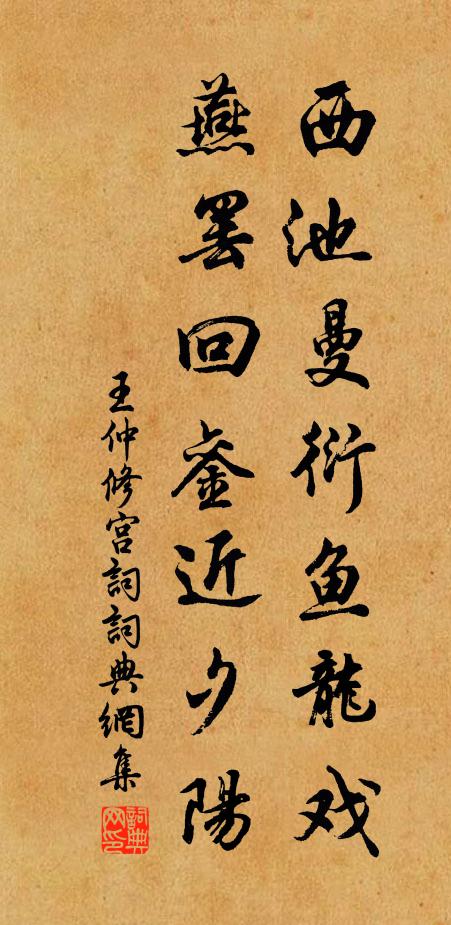 西池曼衍鱼龍戏
燕罢回銮近夕陽
王仲修宫詞詞典網集
詞典网印